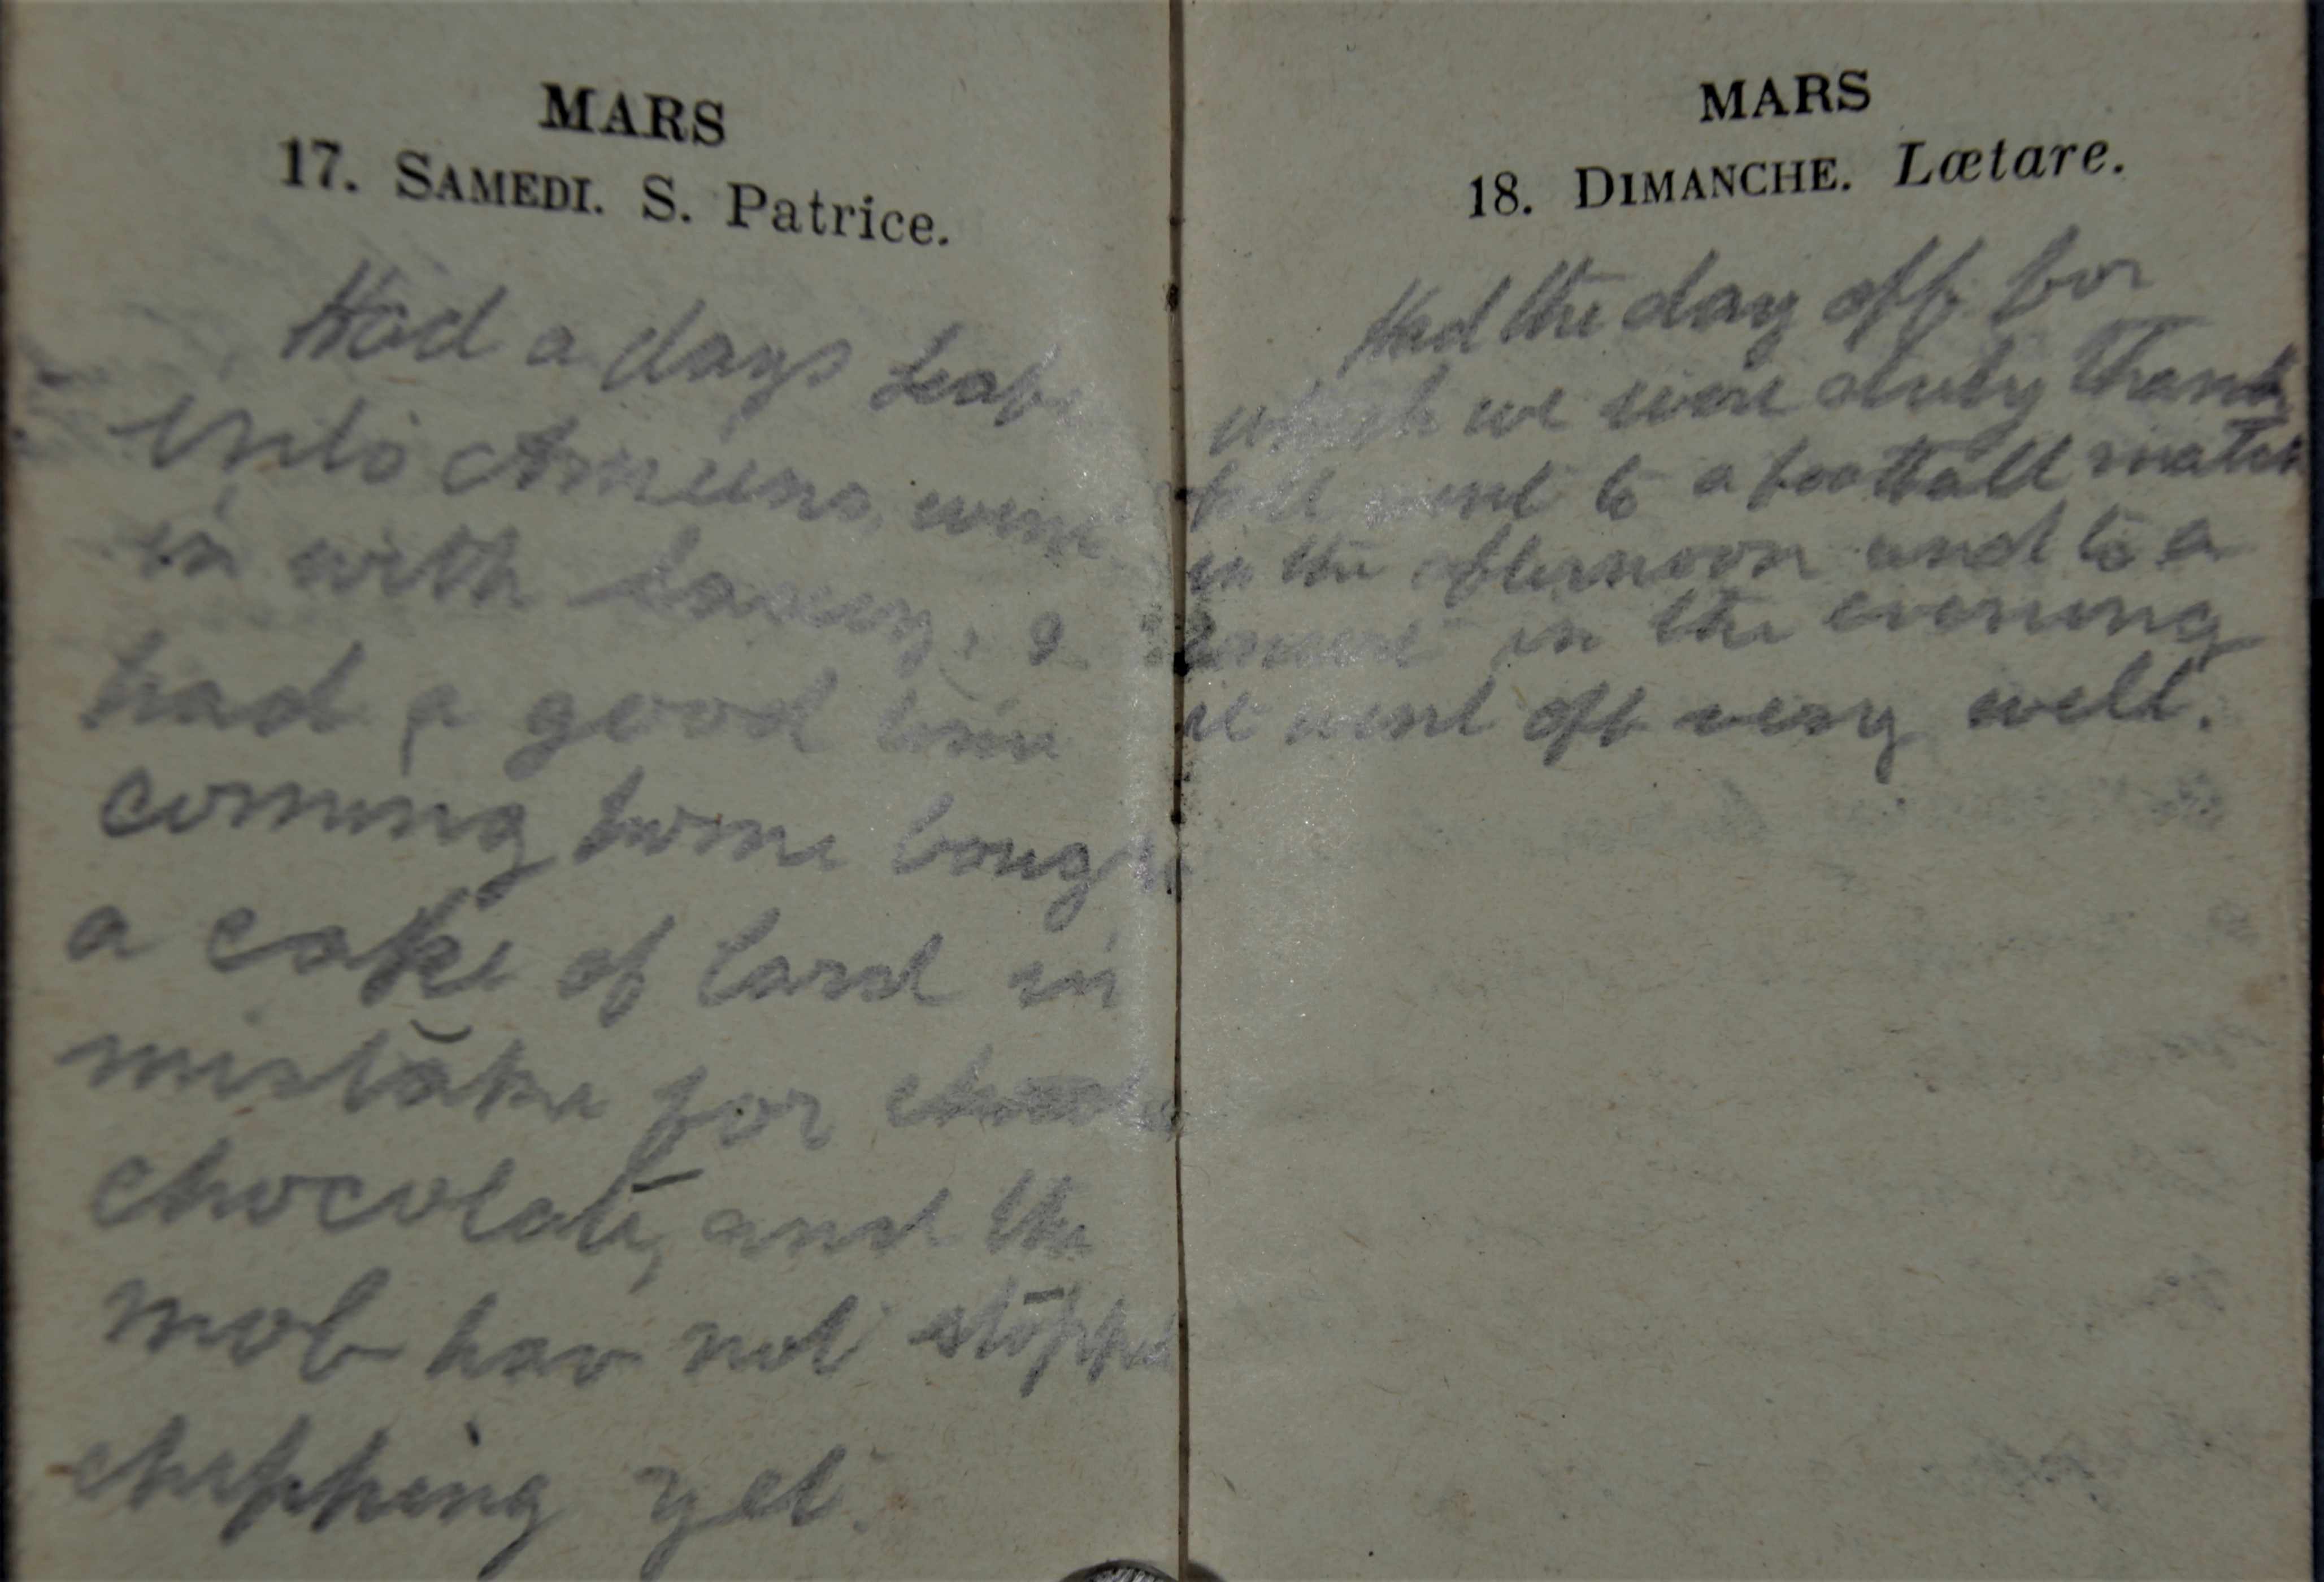 MARS
17. SAMEDI. S. Patrice.
Had a days Leave
into Amiens, went
in with &
had a good time
coming home bought
a cake of lard in
mistake for
chocolate, and the
mob hav not stopped
chipping yet.
MARS
18. DIMANCHE. Lætare.
Had the day off for
which we were duly thank
full went to a football match
in the afternoon and to a
in the evening
it went off very well.